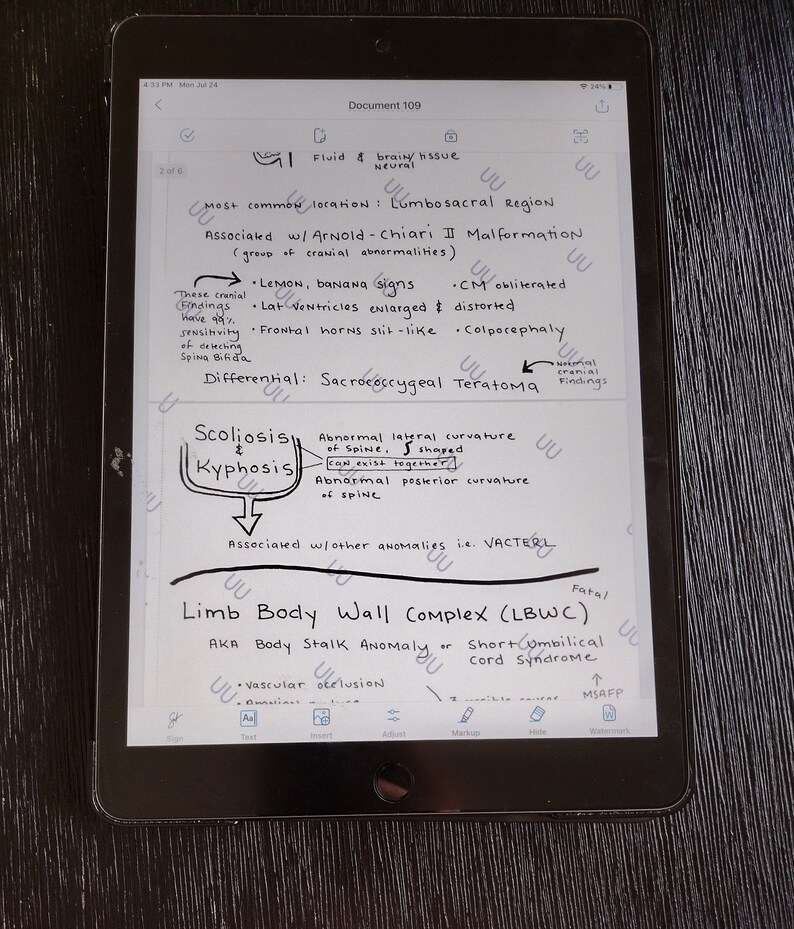 4:33 PM Mon Jul 24 24%
Document 109
2 of 6
Fluid & brain/tissue
Neural
Most common location: Lumbosacral Region
Associated w/ Arnold-Chiari II Malformation
(group of cranial abnormalities)
These cranial
Findings
have 99%
sensitivity
of detecting
Spina Bifida
• Lemon, banana signs • CM obliterated
• Lat ventricles enlarged & distorted
• Frontal horns slit-like • Colpocephaly
Differential: Sacrococcygeal Teratoma
Normal
cranial
Findings
Scoliosis
&
Kyphosis
Abnormal lateral curvature
of spine, ʃ shaped
can exist together
Abnormal posterior curvature
of spine
Associated w/other anomalies i.e. VACTERL
Fatal
Limb Body Wall Complex (LBWC)
AKA Body Stalk Anomaly or Short Umbilical
Cord Syndrome
↑
MSAFP
• Vascular occlusion
Sign Text Insert Adjust Markup Hide Watermark